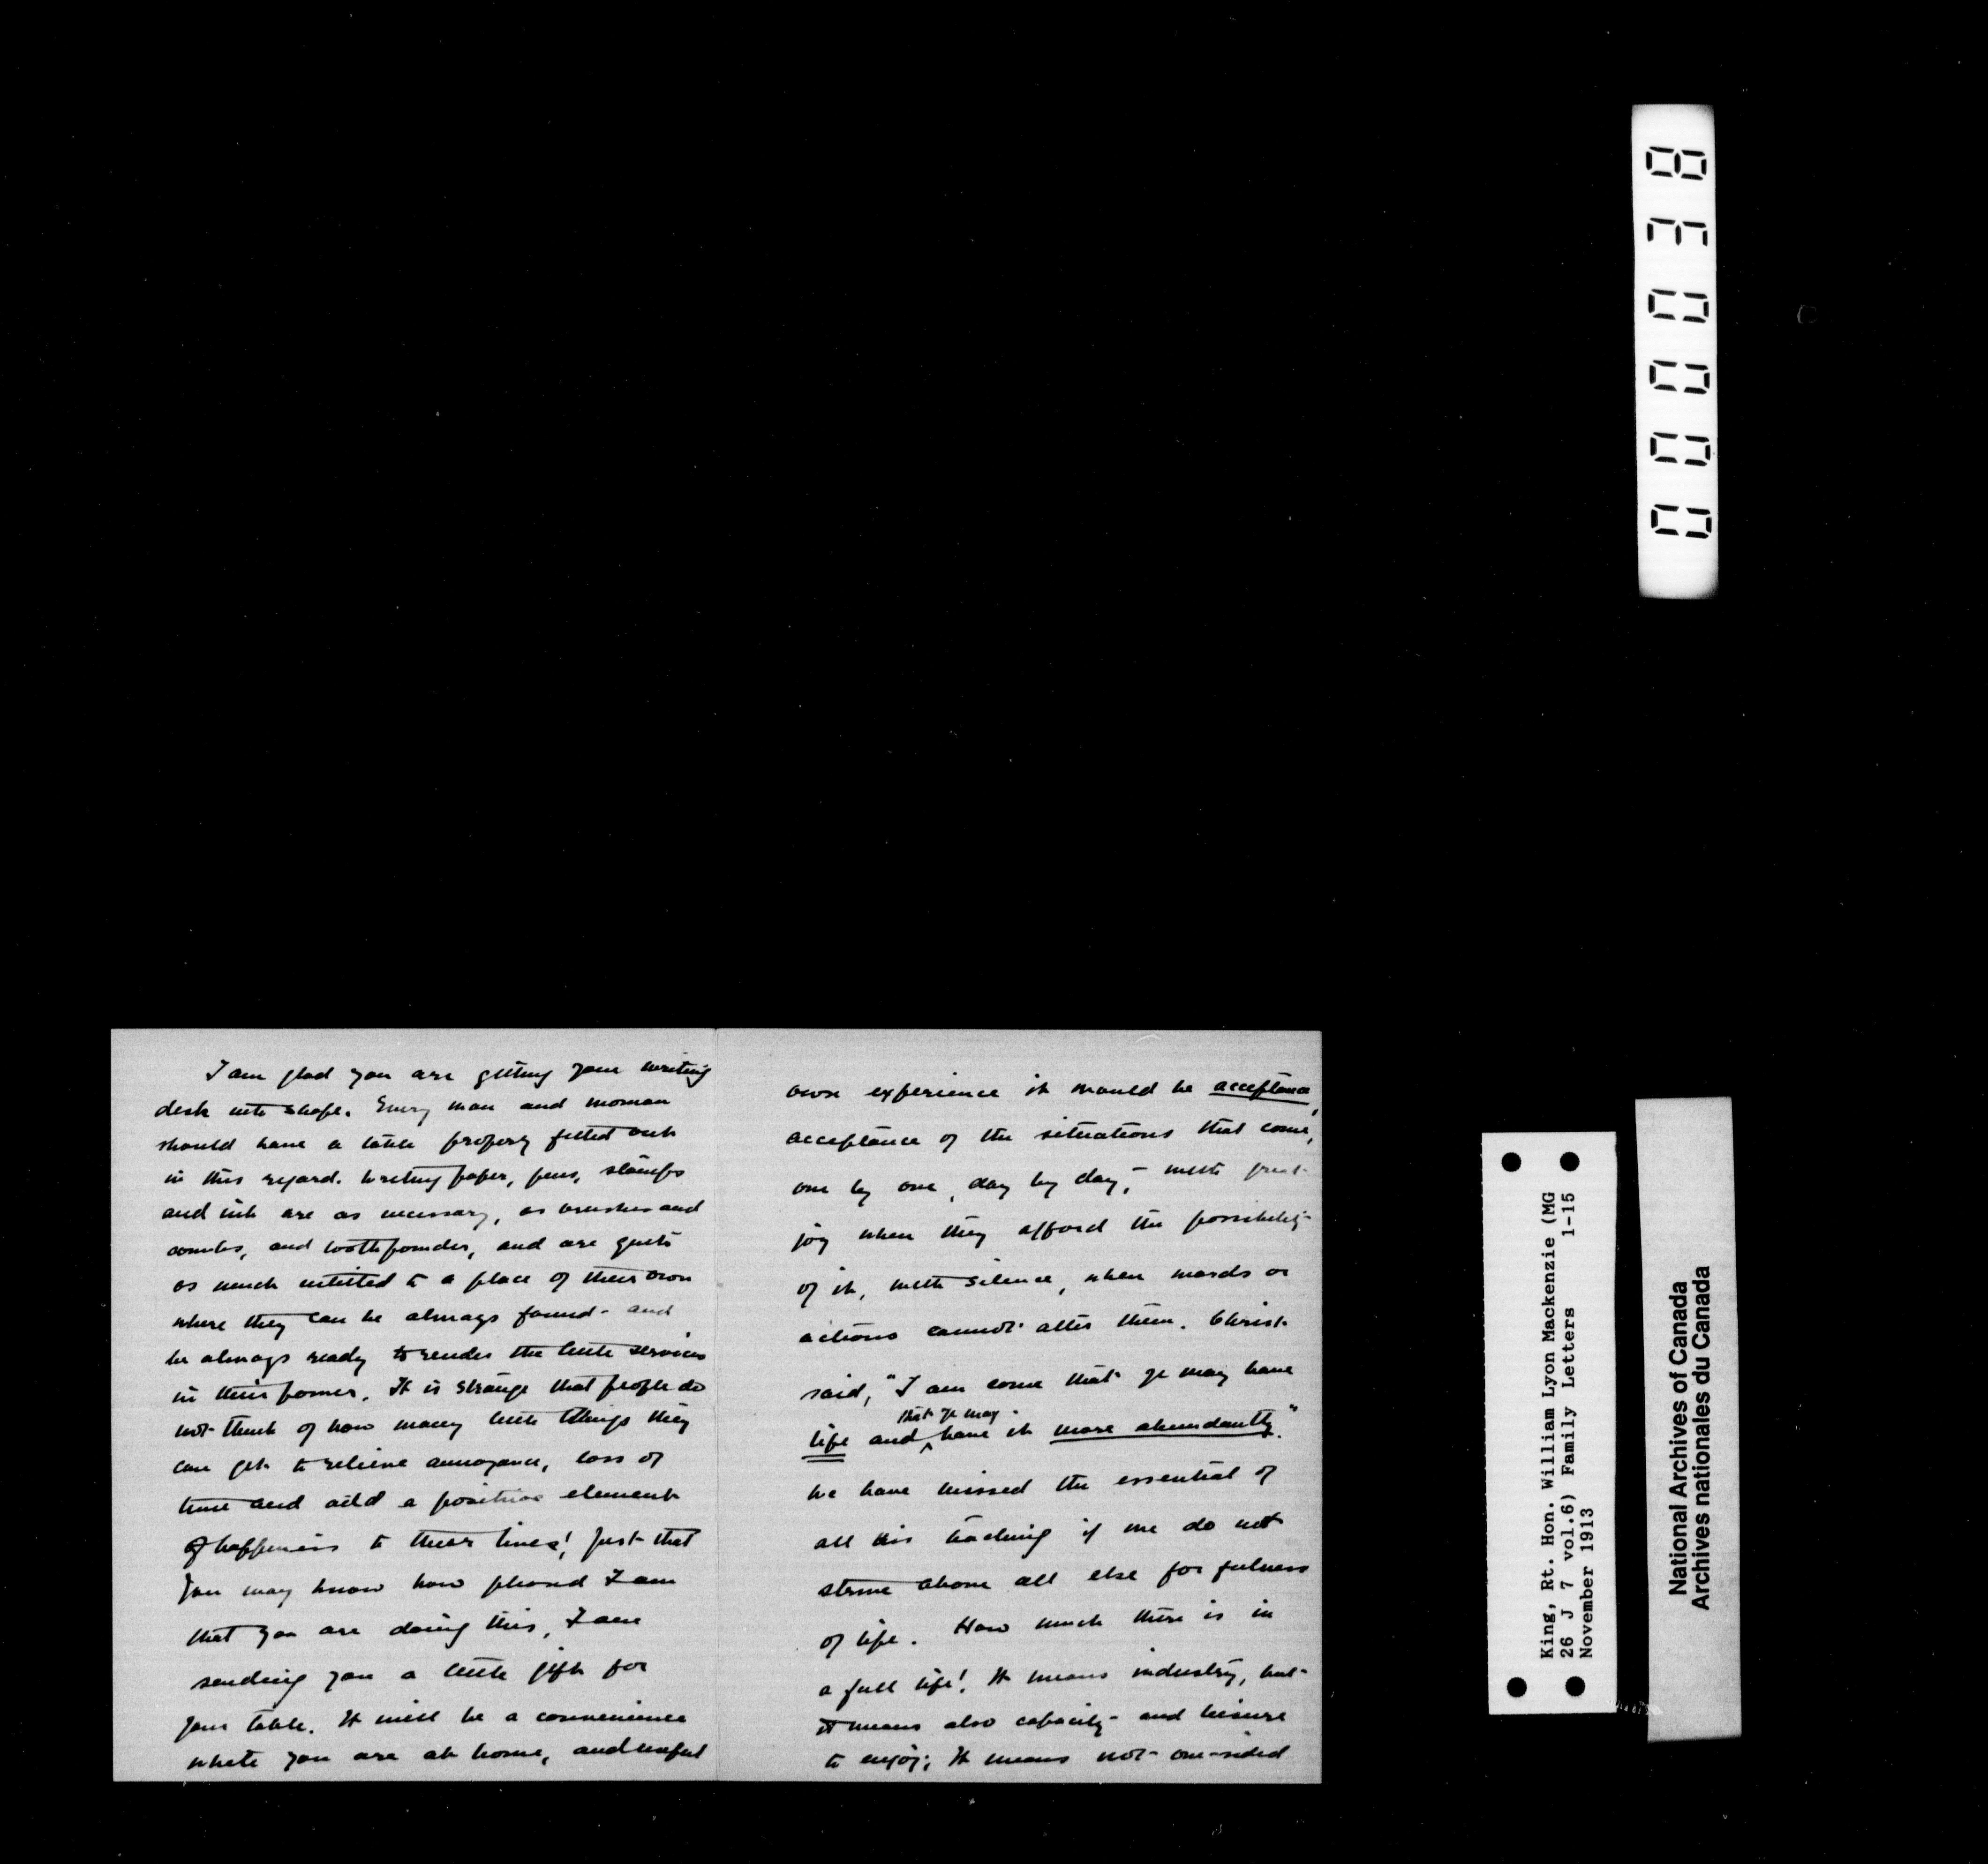 I am glad you are getting your writing
desk into shape. Every man and woman
should have a table propery fitted out
in this regard. Writing paper, pens, stamps
and ink are as necessary, as brushes and
combs, and toothpowder, and are quite
as much entitled to a place of their own
where they can be always found - and
be always ready to render the little services
in their power. It is strange that people do
not think of how many little things they
can get to relieve annoyance, loss of
time and add a positive element
of happiness to their lives! Just that
you may know how pleased I am
that you are doing this, I am
sending you a little gift for
your table. It will be a convenience
while you are at home, and useful
own experience it would be acceptance,
acceptance of the situations that come,
one by one, day by day, - with great
joy when they afford the possibility
of it, with silence, when words or
actions cannot alter them. Christ
said, "I am come that ye may have
life and that ye may have it more abundantly".
We have missed the essential of
all his teaching if we do not
strive above all else for fulness
of life. How much there is in
a full life! It means industry, but
it means also capacity and leisure
to enjoy; It means not one-sided
King, Rt. Hon. William Lyon Mackenzie (MG
26 J 7 vol.6) Family Letters 1-15
November 1913
National Archives of Canada
Archives nationales du Canada